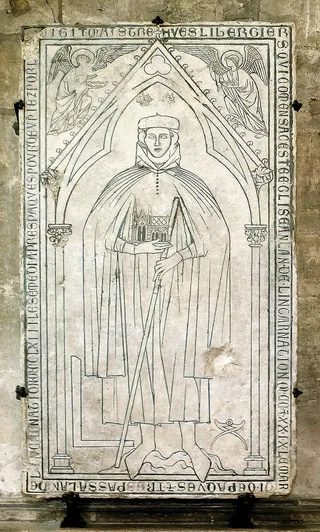 CI GIT MAISTRE HVES LIBERGIER
S QVI COMENSA CESTE EGLISE AN LAN DE LINCARNATION MCC XXIX LE MAR
DI DE PAQVES ET TRESPASSA LAN DE
LINCARNATION MCC LXIII LE SEMEDI APRES PAQVES POVR DEV PIEZ POR L